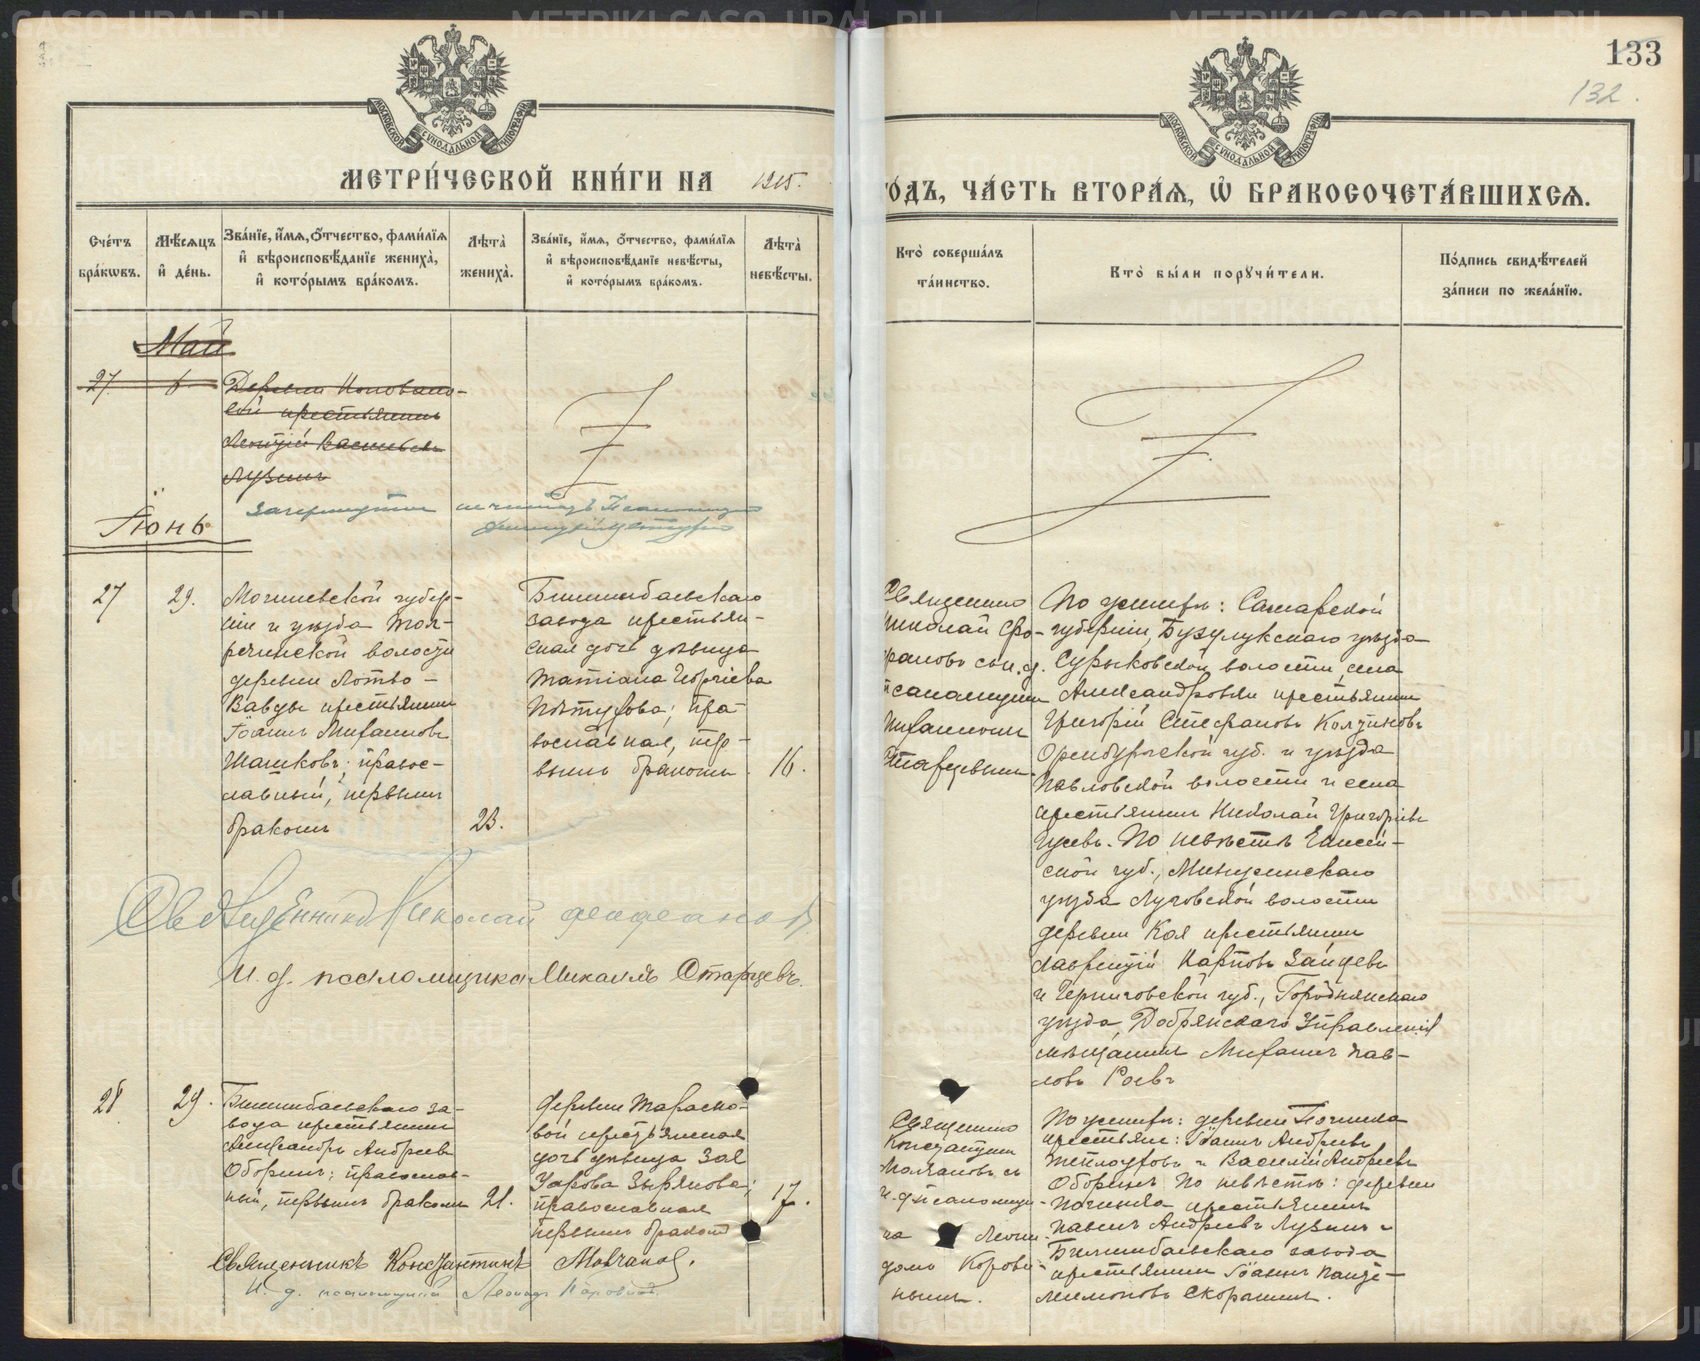 133
132.
МЕТРИ́ЧЕСКОЙ КНИ́ГИ НА 1915.
ГО́ДЪ, ЧА́СТЬ ВТОРА́Я, Ѡ҆ БРАКОСОЧЕТА́ВШИХСЯ.
Сче́тъ бра́кѡвъ.
Мѣ́сяцъ и҆ де́нь.
Зва́нїе, и҆́мя, ѻ҆́тчество, фами́лїя и҆ вѣроисповѣ́данїе жениха̀, и҆ кото́рымъ бра́комъ.
Лѣта̀ жениха̀.
Зва́нїе, и҆́мя, ѻ҆́тчество, фами́лїя и҆ вѣроисповѣ́данїе невѣ́сты, и҆ кото́рымъ бра́комъ.
Лѣта̀ невѣ́сты.
Кто̀ соверша́лъ та́инство.
Кто̀ бы́ли порꙋчи́тели.
По́дпись свидѣ́телей за́писи по жела́нїю.
Май
27. 6
Деревни Коновало-
вой крестьянинъ
Леонтій Васильевъ
Лузинъ
зачеркнутое не читать Псаломщикъ
Іюнь
27
29.
Могилевской губер-
ніи и уѣзда Тол-
реченской волости
деревни
крестьянинъ
Іоаннъ Михаиловъ
Шашковъ; правос-
лавный, первымъ
бракомъ
23.
Билимбаевскаго
завода крестьян-
ская дочь дѣвица
Татіана Георгіева
Пѣтухова; пра-
вославная, пер-
вымъ бракомъ
16.
Священно
Николай
фановъ съ и. д.
псаломщика
Михаиломъ
Старцевымъ.
По женихѣ: Самарской
губерніи, Бузулукскаго уѣзда
волости, села
Александровки крестьянинъ
Григорій Стефановъ Колупновъ
Оренбургской губ. и уѣзда
Павловской волости и села
крестьянинъ Николай Григорьевъ
Гусевъ. По невѣстѣ Енисей-
ской губ., Минусинскаго
уѣзда Луговской волости
деревни Коя крестьянинъ
Лаврентій Карповъ Зайцевъ
и Черниговской губ., Городнянскаго
уѣзда, Добрянскаго Управленія
мѣщанинъ Михаилъ Пав-
ловъ Роевъ
Священникъ Николай
И. д. псаломщика Михаилъ Старцевъ.
28
29.
Билимбаевскаго за-
вода крестьянинъ
Александръ Андреевъ
Оборинъ; православ-
ный, первымъ бракомъ
21.
Деревни Тараско-
вой крестьянская
дочь дѣвица Зоя
Уарова Зырянова;
православная
первымъ бракомъ
17.
Священно
Константинъ
Молчановъ съ
и. д. псаломщи-
ка Леони-
домъ Корови-
нымъ.
По женихѣ: деревни Починка
крестьяне: Іоаннъ Андреевъ
Теплоуховъ и Василій Андреевъ
Оборинъ По невѣстѣ: деревни
Починка крестьянинъ
Павелъ Андреевъ Лузинъ и
Билимбаевскаго завода
крестьянинъ Іоаннъ Панте-
леимоновъ Скорынинъ.
Священникъ Константинъ Молчановъ.
И. д. псаломщика Леонидъ Коровинъ